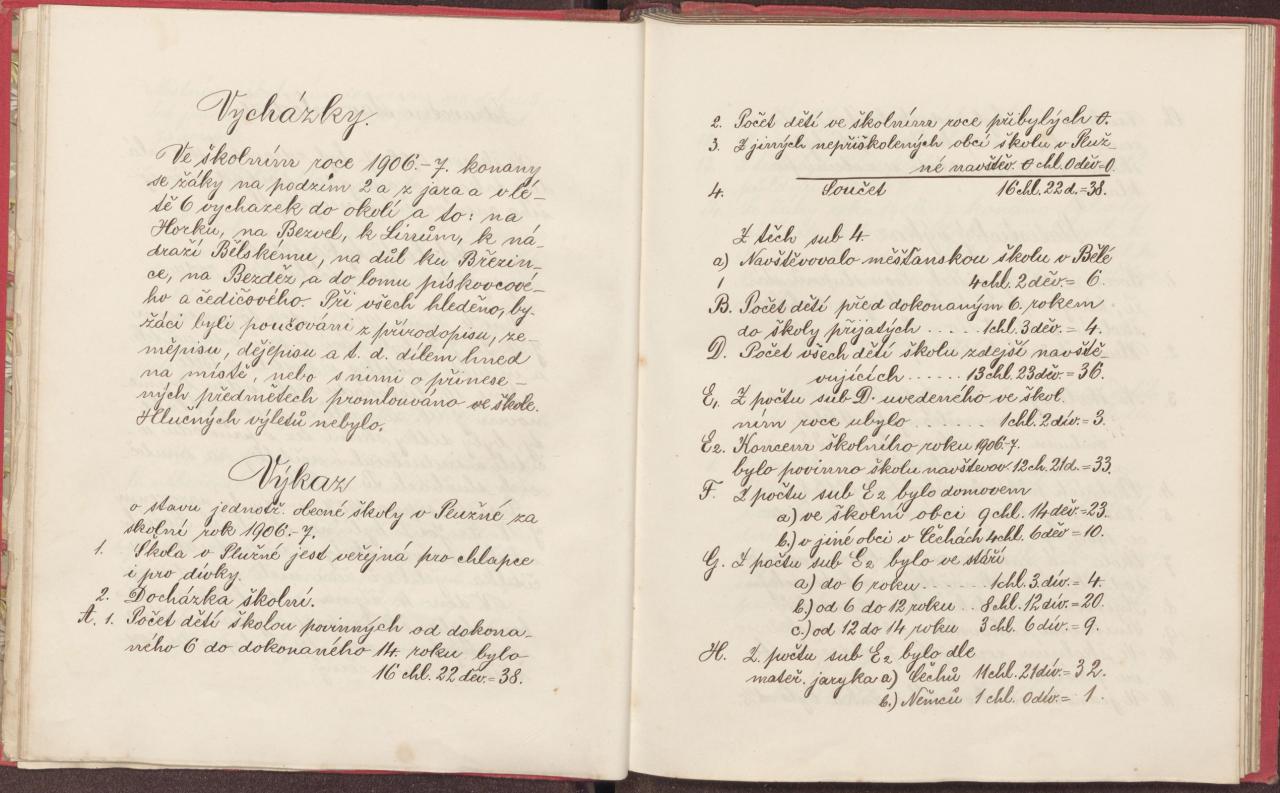 Vycházky.
Ve školním roce 1906.-7. konany
se žáky na podzim 2 a z jara a v lé-
tě 6 vycházek do okolí a to: na
Horku, na Bezvel, k Linům, k ná-
draží Bělskému, na důl ku Březin-
ce, na Bezděz a do lomu pískovcové-
ho a čedičového. Při všech hleděno, by
žáci byli poučováni z přírodopisu, ze-
měpisu, dějepisu a t. d. dílem hned
na místě, nebo s nimi o přinese-
ných předmětech promlouváno ve škole.
Hlučných výletů nebylo.
Výkaz
o stavu jednotř. obecné školy v Plužné za
školní rok 1906.-7.
1. Škola v Plužné jest veřejná pro chlapce
i pro dívky.
2. Docházka školní.
A. 1. Počet dětí školou povinných od dokona-
ného 6 do dokonaného 14. roku bylo
16 chl. 22 děv. = 38.
2. Počet dětí ve školním roce přibylých 0.
3. Z jiných nepřiškolených obcí školu v Pluž-
né navštěv. 0 chl. 0 děv = 0.
4. Součet 16 chl. 22 d. = 38.
Z těch sub 4.
a) Navštěvovalo měšťanskou školu v Bělé
4 chl. 2 děv. = 6.
B. Počet dětí před dokonaným 6. rokem
do školy přijatých ..... 1 chl. 3 děv. = 4.
D. Počet všech dětí školu zdejší navště-
vujících ...... 13 chl. 23 děv. = 36.
E1. Z počtu sub D. uvedeného ve škol.
ním roce ubylo ...... 1 chl. 2 dív. = 3.
E2. Koncem školného roku 1906.-7.
bylo povinno školu navštěvov. 12 ch. 21 d. = 33.
F. Z počtu sub E2 bylo domovem
a) ve školní obci 9 chl. 14 děv. = 23.
b.) v jiné obci v Čechách 4 chl. 6 děv = 10.
G. Z počtu sub E2 bylo ve stáří
a) do 6 roku ....... 1 chl. 3. dív. = 4.
b.) od 6 do 12 roku .. 8 chl. 12 dív. = 20.
c.) od 12 do 14 roku 3 chl. 6 dív. = 9.
H. Z. počtu sub E2 bylo dle
mateř. jazyka a) Čechů 11 chl. 21 dív. = 32.
b.) Němců 1 chl. 0 dív. = 1.